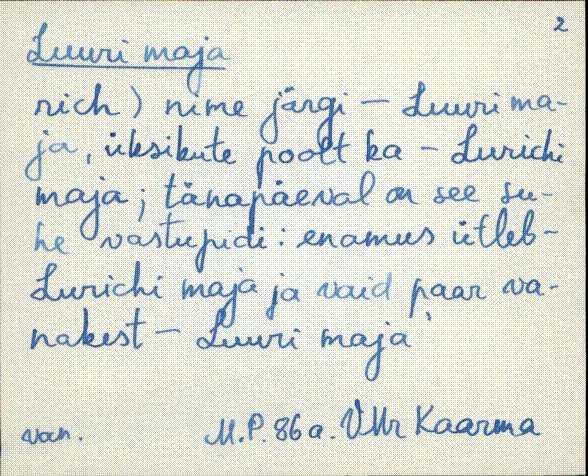 2
Luuri maja
rich) nime järgi – Luuri ma-
ja, üksikute poolt ka – Lurichi
maja; tänapäeval on see su-
he vastupidi: enamus ütleb –
Lurichi maja ja vaid paar va-
nakest – Luuri maja
van. M.P. 86a. Üllr Kaarma